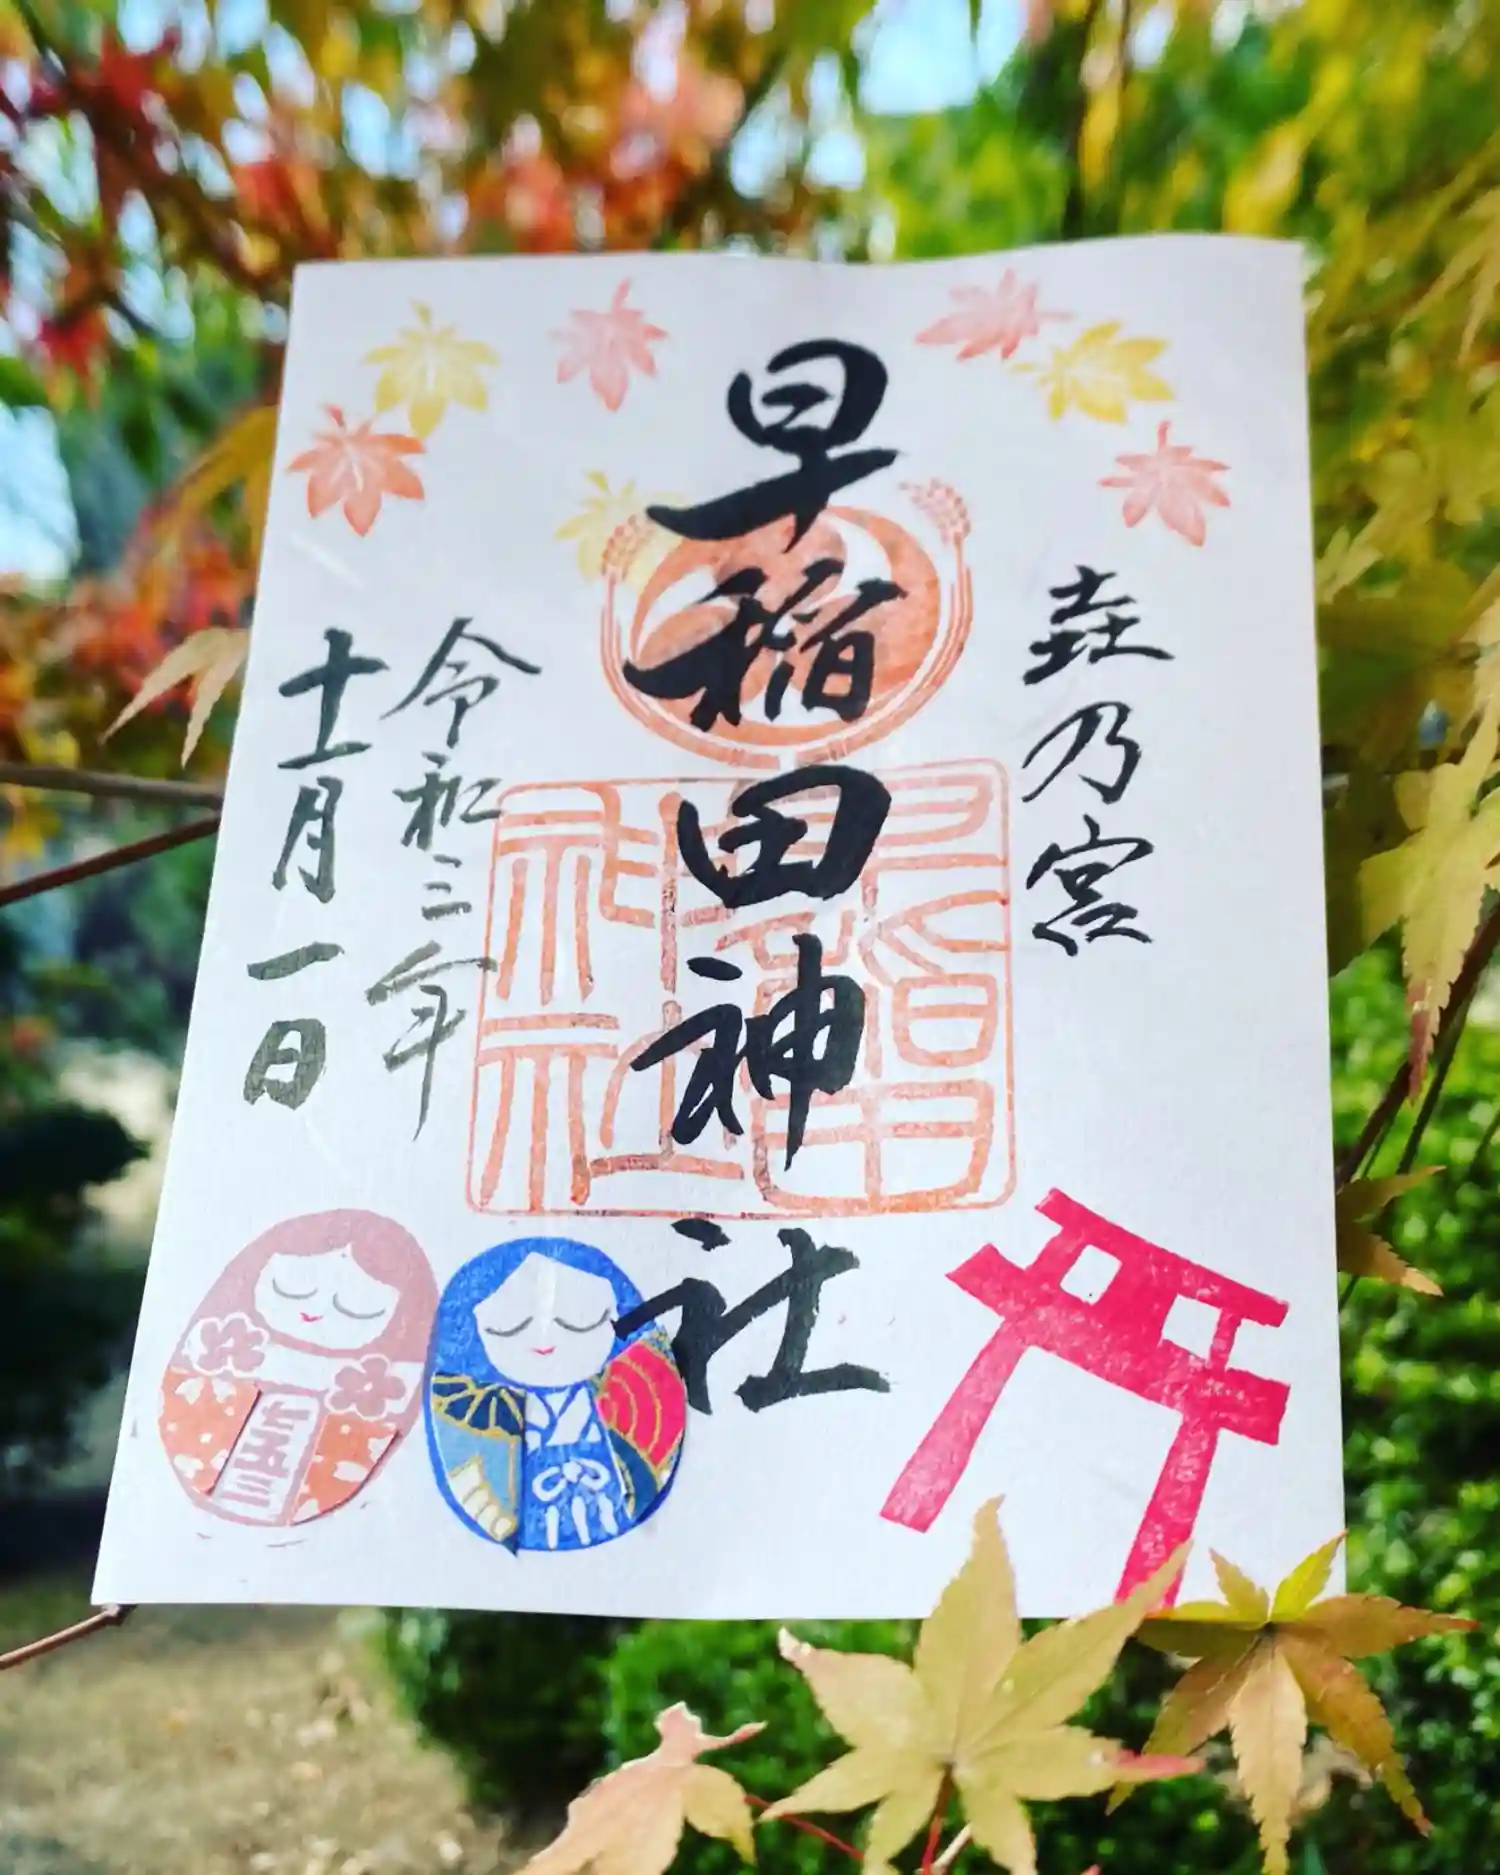 垚乃宮
早稲田神社
令和三年
十一月一日
早稲田
神社
七五三